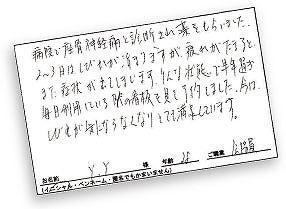 病院で座骨神経痛と診断され薬をもらいました。
2〜3日はしびれが治まりますが疲れがたまると
また症状が出てしまいます。そんな状態で半年過ぎ
毎日利用している駅の看板を見て予約しました。今は
しびれが気にならなくなりとても満足しています。
お名前 Y.Y 様 年齢 28 ご職業 会社員
(イニシャル・ペンネーム・匿名でもかまいません)